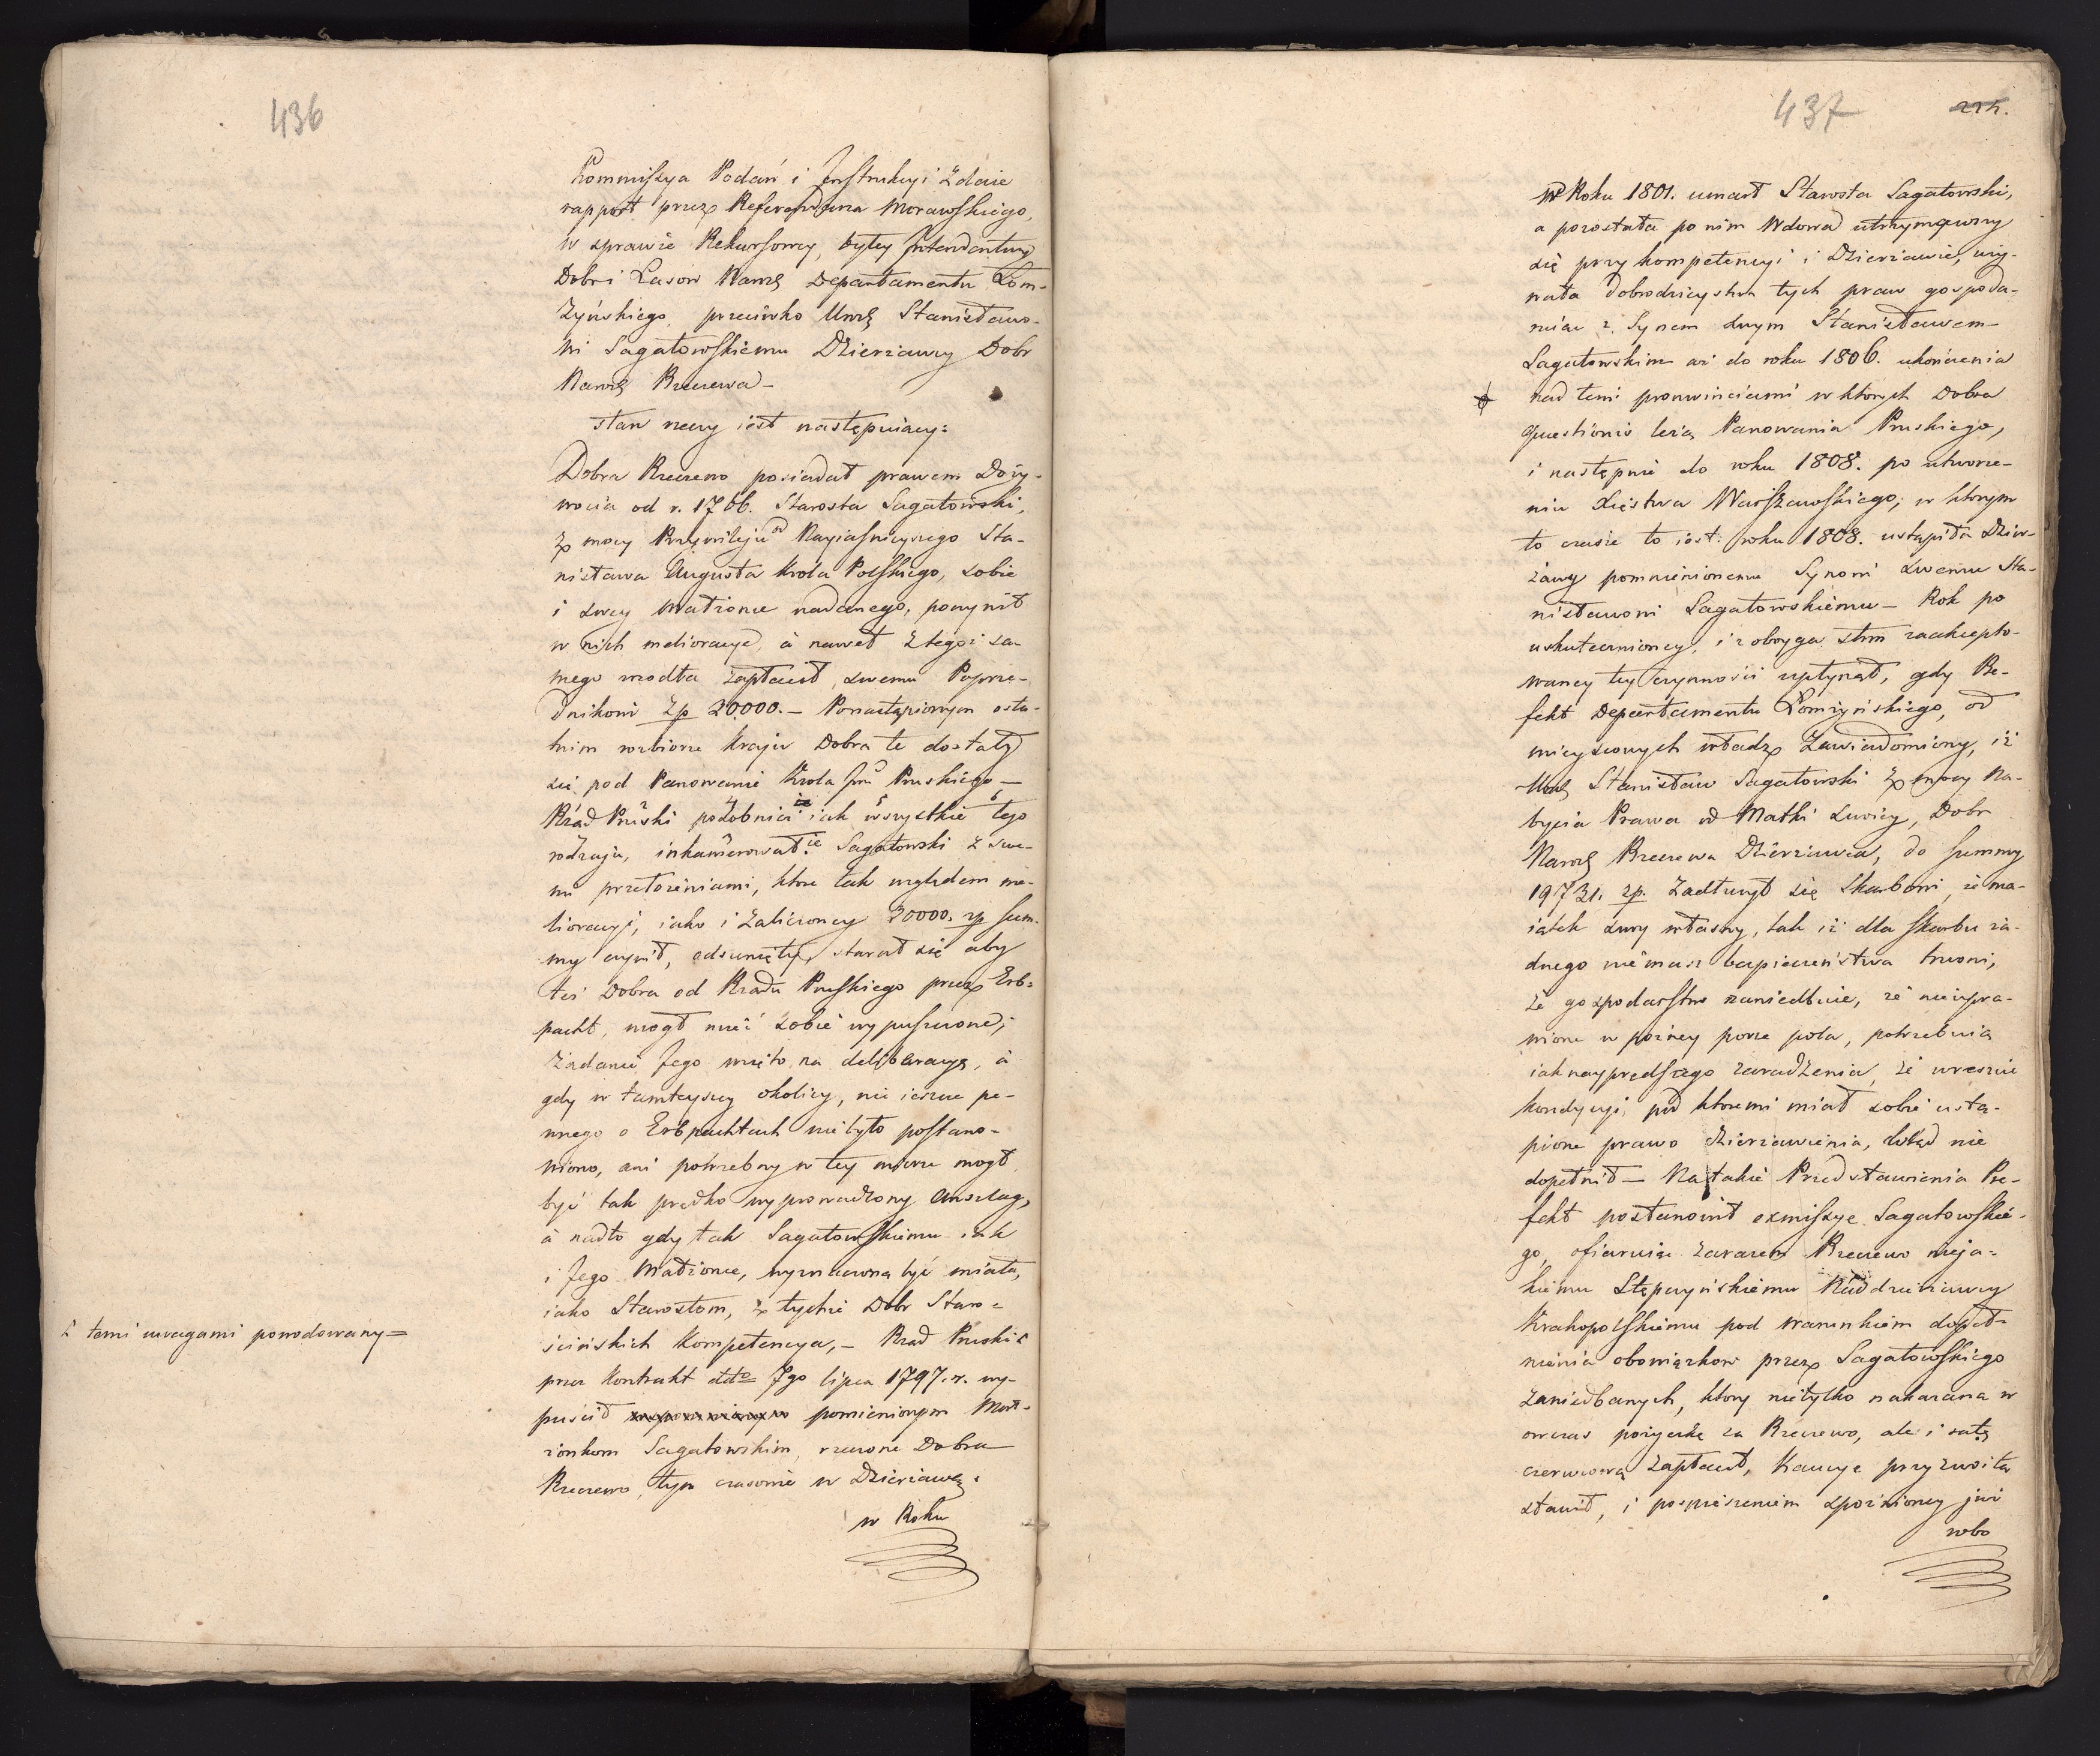 436
Kommissya Podań i Instrukcyi zdaie
rapport przez Referendarza Morawskiego,
w sprawie Rekursowey, byłey Intendentury
Dobr i Lasow Narod. Departamentu Łom-
żyńskiego, przeciwko Stanisławo-
wi Sagatowskiemu Dzierżawcy Dobr
Narod. Rzeczewa —
Stan rzeczy iest następuiący:
Dobra Rzeczewo posiadał prawem Doży-
wocia od r. 1766. Starosta Sagatowski,
z mocy Przywileju Nayiaśnieyszego Sta-
nisława Augusta Krola Polskiego, sobie
i swey Małżonce nadanego, poczynił
w nich melioracye, à nawet z tegoż sa-
mego wzodła zapłacił swemu Poprze-
dnikowi zp 20000. — Po nastąpionym osta-
tnim rozbiorze Kraju Dobra te dostały
się pod Panowanie Krola Pruskiego —
Rząd Pruski podobnież iak wszystkie tego
rodzaju, inkamerował ie Sagatowski z swe-
mi przełożeniami, ktore tak względem me-
lioracyi, iako i zaliczoney 20000. zp Sum-
my czynił, odsunięty, starał się aby
też Dobra od Rządu Pruskiego przez Erb=
pacht, mogł mieć sobie wypuszczone;
Żądanie Jego wzięto na deliberacyą, à
gdy w tamteyszey okolicy, nic ieszcze pe-
wnego o Erbpachtach nie było postano-
wiono, ani potrzebny w tey mierze mogł
być tak prędko wyprowadzony Anszlag,
à nadto gdy tak Sagatowskiemu iak
i Jego Małżonce, wyznaczona być miała,
iako Starostom, z tychże Dobr Staro=
ścińskich Kompetencya, — Rząd Pruski
z temi uwagami powodowany =
przez Kontrakt ddto 7go lipca 1797. r. wy-
puścił pomienionym Mał-
żonkom Sagatowskim, rzeczone Dobra
Rzeczewo, tym czasowie w Dzierżawę.
w Roku
437
W Roku 1801. umarł Starosta Sagatowski,
a pozostała po nim Wdowa utrzymawszy
się przy kompetencyi i Dzierżawie, uży-
wała dobrodzieystw tych praw gospoda-
ruiąc z Synem swym Stanisławem
Sagatowskim aż do roku 1806. ukończenia
nad temi prowinciami w ktorych Dobra
questionis leżą Panowania Pruskiego,
i następnie do roku 1808. po utworze-
niu Xięstwa Warszawskiego; w ktorym
to czasie to iest: roku 1808. ustąpiła Dzier-
żawy pomienionemu Synowi swemu Sta-
nisławowi Sagatowskiemu — Rok po
uskutecznioney, i z oboyga stron zaakcepto-
waney tey czynności upłynął, gdy Pre-
fekt Departamentu Łomżyńskiego, od
mieyscowych władz zawiadomiony, iż
Stanisław Sagatowski z mocy na-
bycia Prawa od Matki swoiey, Dobr
Narod. Rzeczewa Dzierżawca, do Summy
19731. zp. zadłużył się Skarbowi, że ma-
iątek swoy własny, tak iż dla skarbu ża-
dnego niemasz bezpieczeństwa trwoni,
że gospodarstwo zaniedbuie, że nieupra-
wione w poźney porze pola, potrzebuią
iak nayprędszego zaradzenia, że wreszcie
kondycyi, pod ktoremi miał sobie ustą-
pione prawo dzierżawienia, dotąd nie
dopełnił — Na takie Przedstawienia Pre-
fekt postanowił exmissye Sagatowskie-
go, ofiaruiąc zarazem Rzeczewo nieja=
kiemu Stępczyńskiemu Naddzierżawcy
Krakopolskiemu pod warunkiem dopeł-
nienia obowiązkow przez Sagatowskiego
zaniedbanych, ktory nietylko nakazaną w
owczas pożyczkę za Rzeczewo, ale i ratę
czerwcową zapłacił, Kaucye przyzwoitą
stawił, i pospieszeniem spoźnioney już
robo